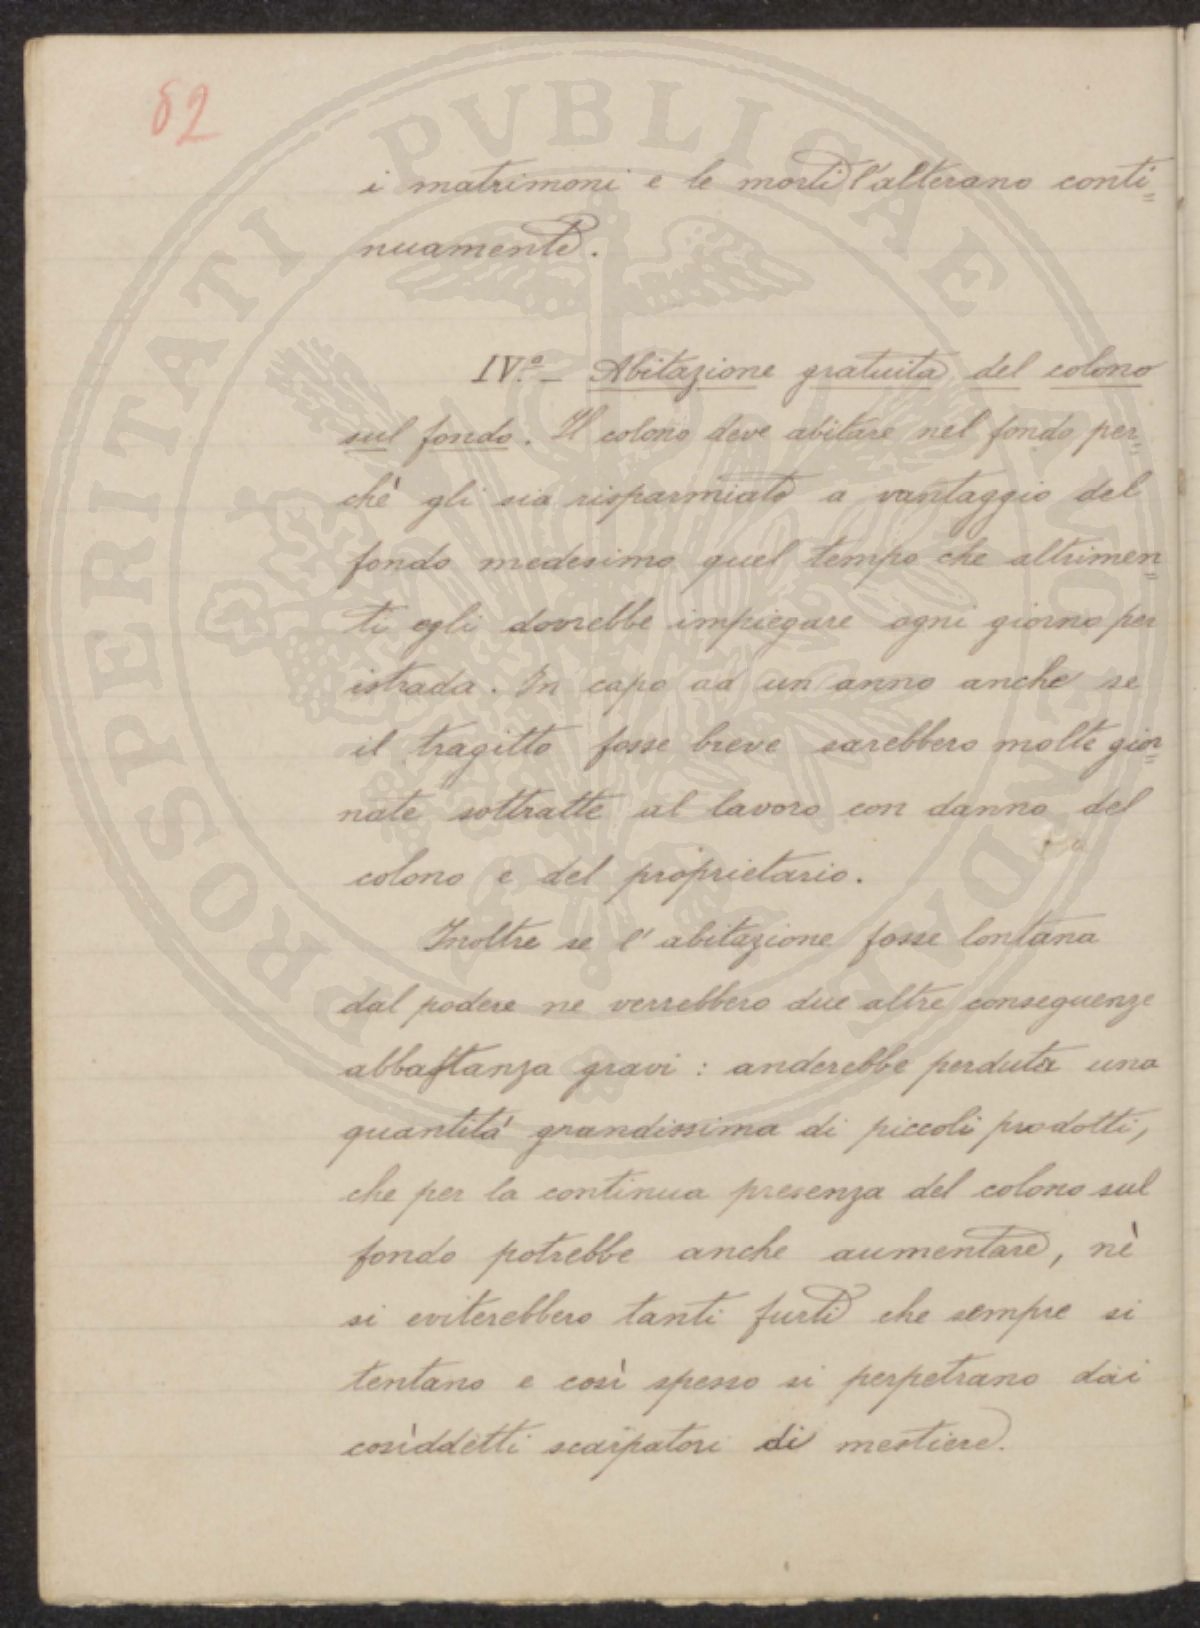 82
i matrimoni e le morti l'alterano conti=
nuamente.
IV.º - Abitazione gratuita del colono
sul fondo. Il colono deve abitare nel fondo per=
chè gli sia risparmiato a vantaggio del
fondo medesimo quel tempo che altrimen=
ti egli dovrebbe impiegare ogni giorno per
istrada. In capo ad un anno anche se
il tragitto fosse breve sarebbero molte gior=
nate sottratte al lavoro con danno del
colono e del proprietario.
Inoltre se l'abitazione fosse lontana
dal podere ne verrebbero due altre conseguenze
abbastanza gravi: anderebbe perduta una
quantità grandissima di piccoli prodotti,
che per la continua presenza del colono sul
fondo potrebbe anche aumentare, nè
si eviterebbero tanti furti che sempre si
tentano e così spesso si perpetrano dai
cosìddetti scarpatori di mestiere.
PROSPERITATI PVBLICAE AVGENDAE